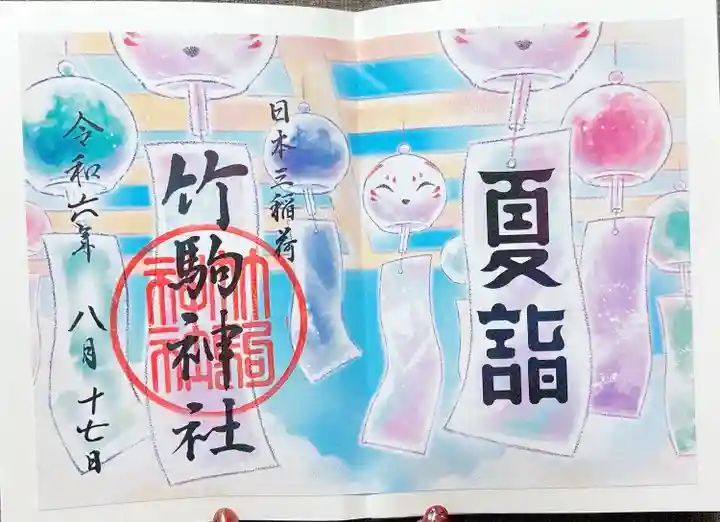 夏詣
日本三稲荷
竹駒神社
令和六年 八月十七日